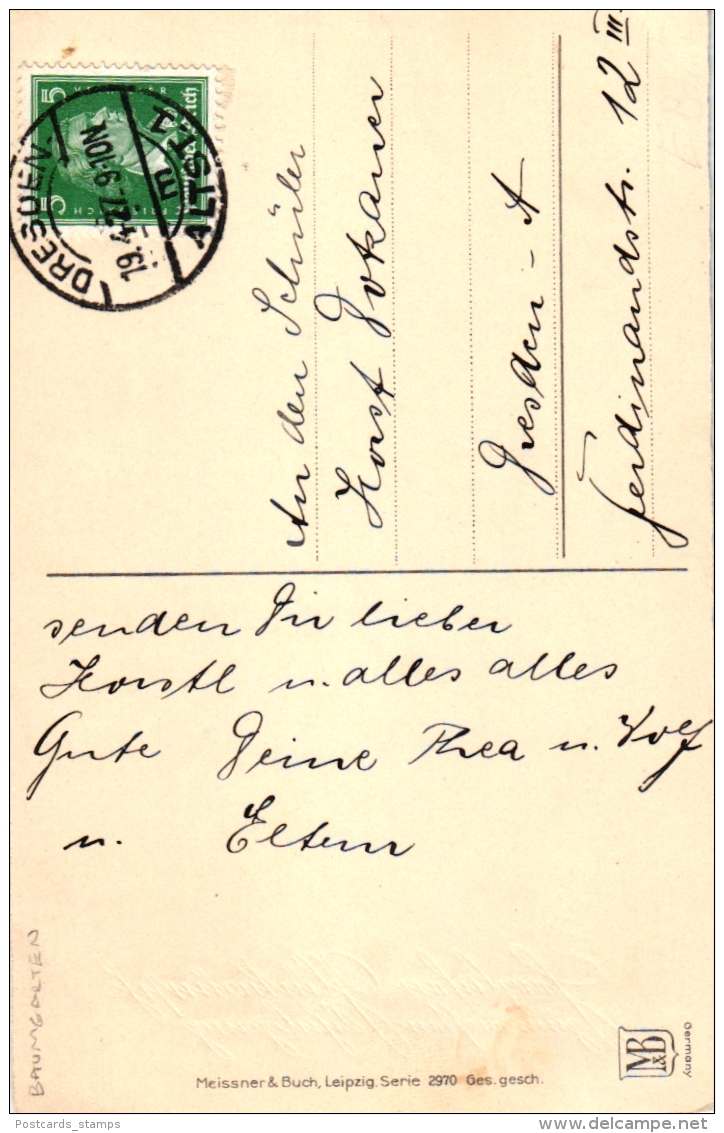 5 5
DRESDEN-
ALTST. 1
19.4.27. 9-10N
m
An den Schüler
Horst
Dresden - A
Ferdinandstr. 12 III
senden Dir lieber
Horstl u. alles alles
Gute Deine Thea u. Wolf
u. Eltern
BAUMGARTEN
Meissner & Buch, Leipzig. Serie 2970 Ges. gesch.
M&B
Germany
Postcards_stamps
www.delcampe.net